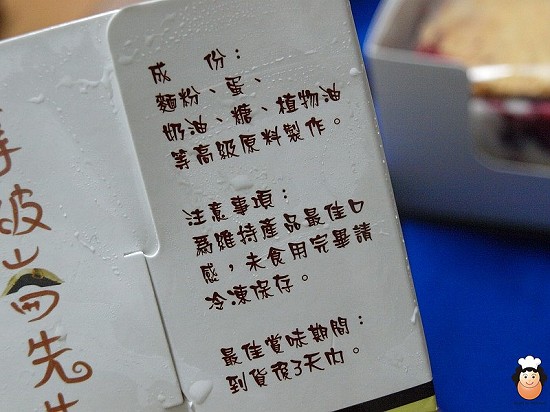 成　份：
麵粉、蛋、
奶油、糖、植物油
等高級原料製作。
注意事項：
為維持產品最佳口
感，未食用完畢請
冷凍保存。
最佳賞味期間：
到貨後3天內。
波
先